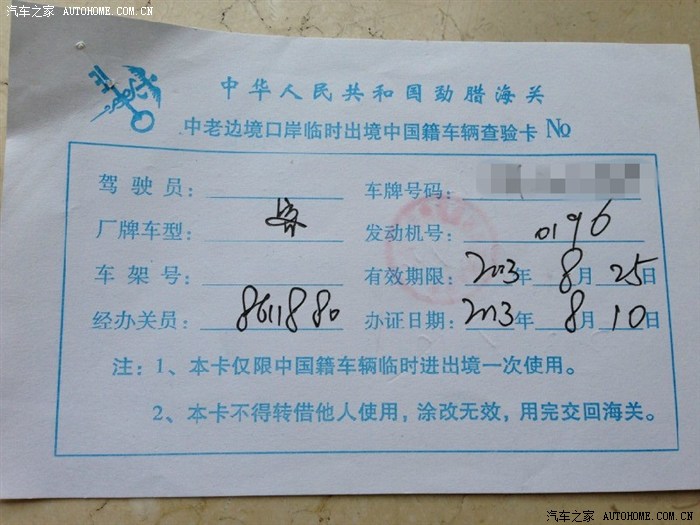 汽车之家 AUTOHOME.COM.CN
中华人民共和国勐腊海关
中老边境口岸临时出境中国籍车辆查验卡 No
驾驶员: 车牌号码:
厂牌车型: 发动机号: 0196
车架号: 有效期限: 2013年 8月 25日
经办关员: 8611880 办证日期: 2013年 8月 10日
注: 1、本卡仅限中国籍车辆临时进出境一次使用。
2、本卡不得转借他人使用，涂改无效，用完交回海关。
汽车之家 AUTOHOME.COM.CN